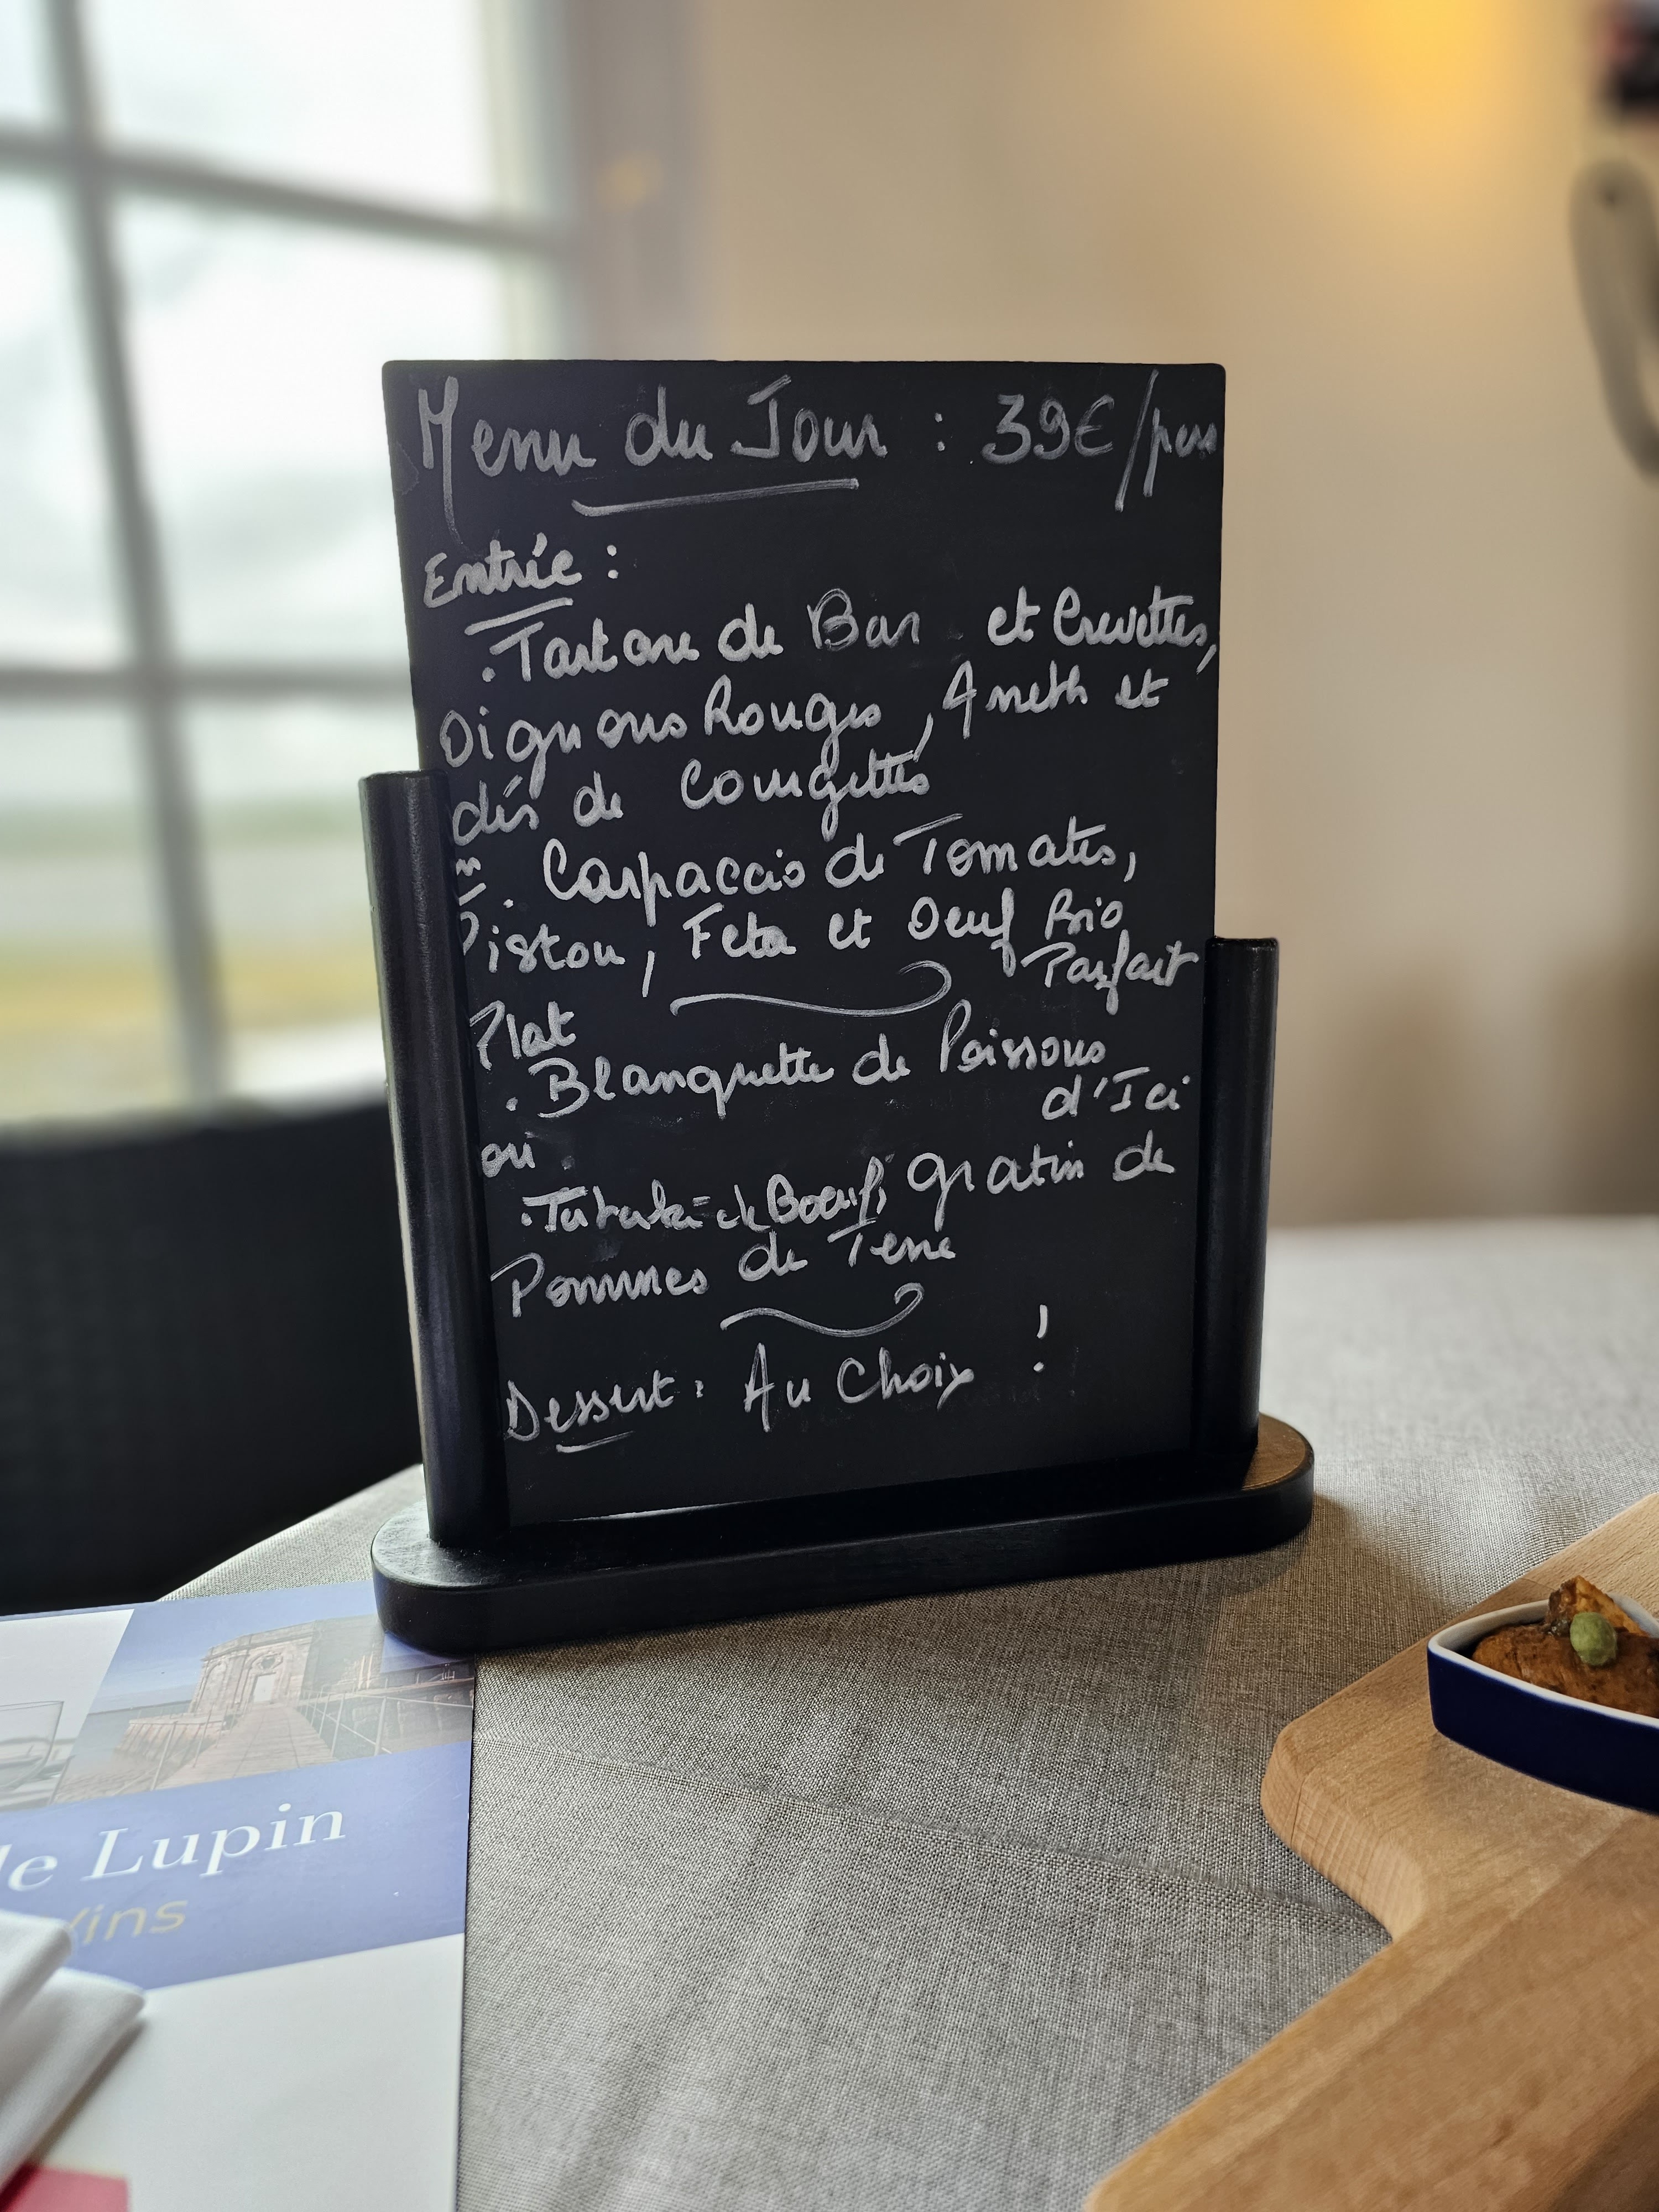 Menu du Jour : 39€/pers
Entrée :
. Tartare de Bar et Crevettes,
Oignons Rouges, Aneth et
dés de Courgettes
. Carpaccio de Tomates,
Pistou, Feta et Oeuf Bio
Parfait
Plat
. Blanquette de Poissons
d'Ici
ou
. Tataki de Boeuf, gratin de
Pommes de Terre
Dessert : Au Choix !
de Lupin
Vins